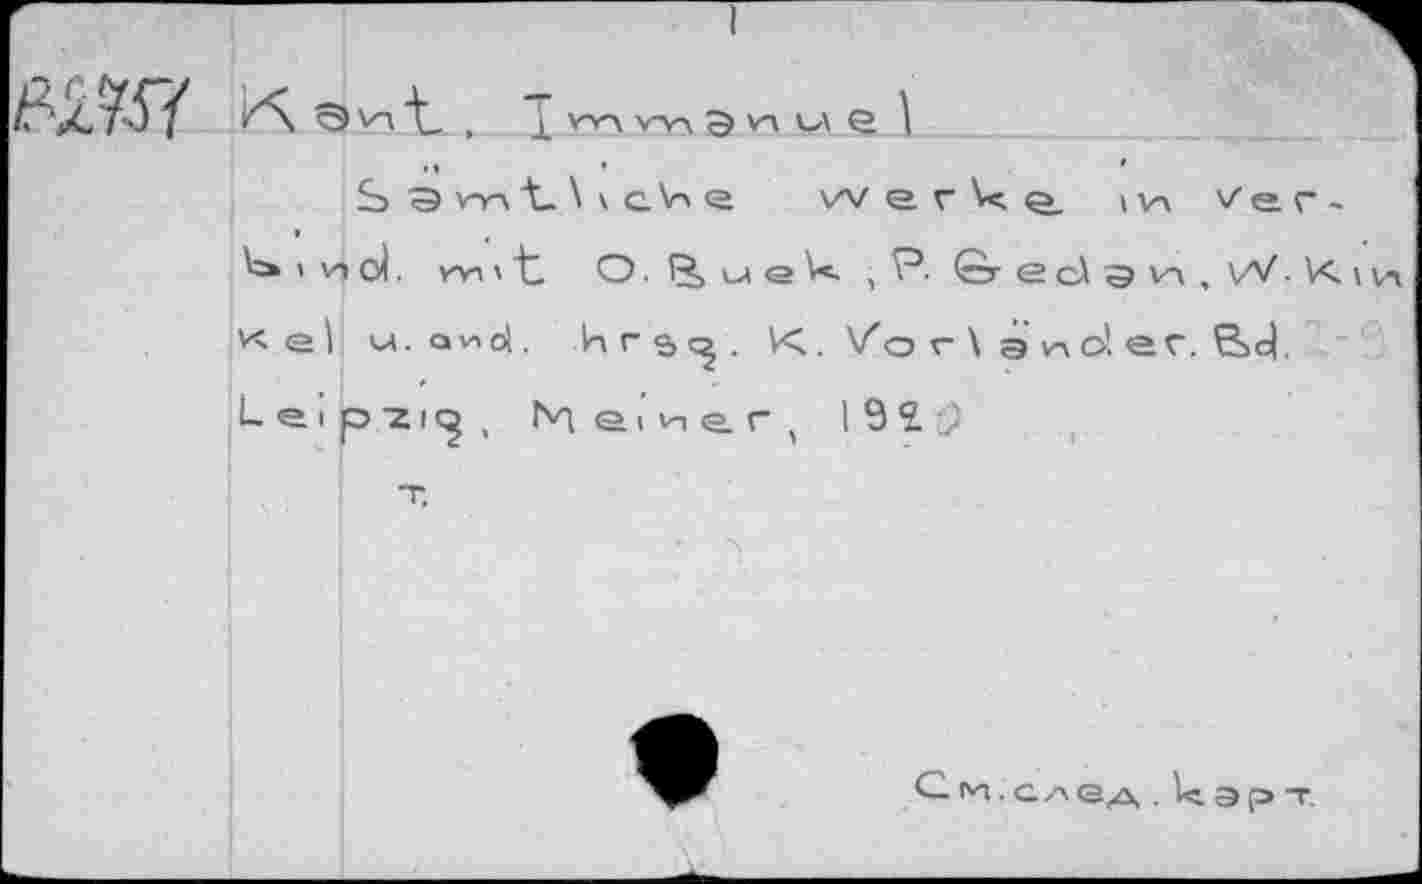 1
Kant, Immanuel
Sämtliche Werke in Ver-
bind. mit O. Buek, P. Gedan, W. Kin
kel u. and. hrsg. K. Vorländer. Bd.
Leipzig, Meiner, 192
т.
См. след. карт